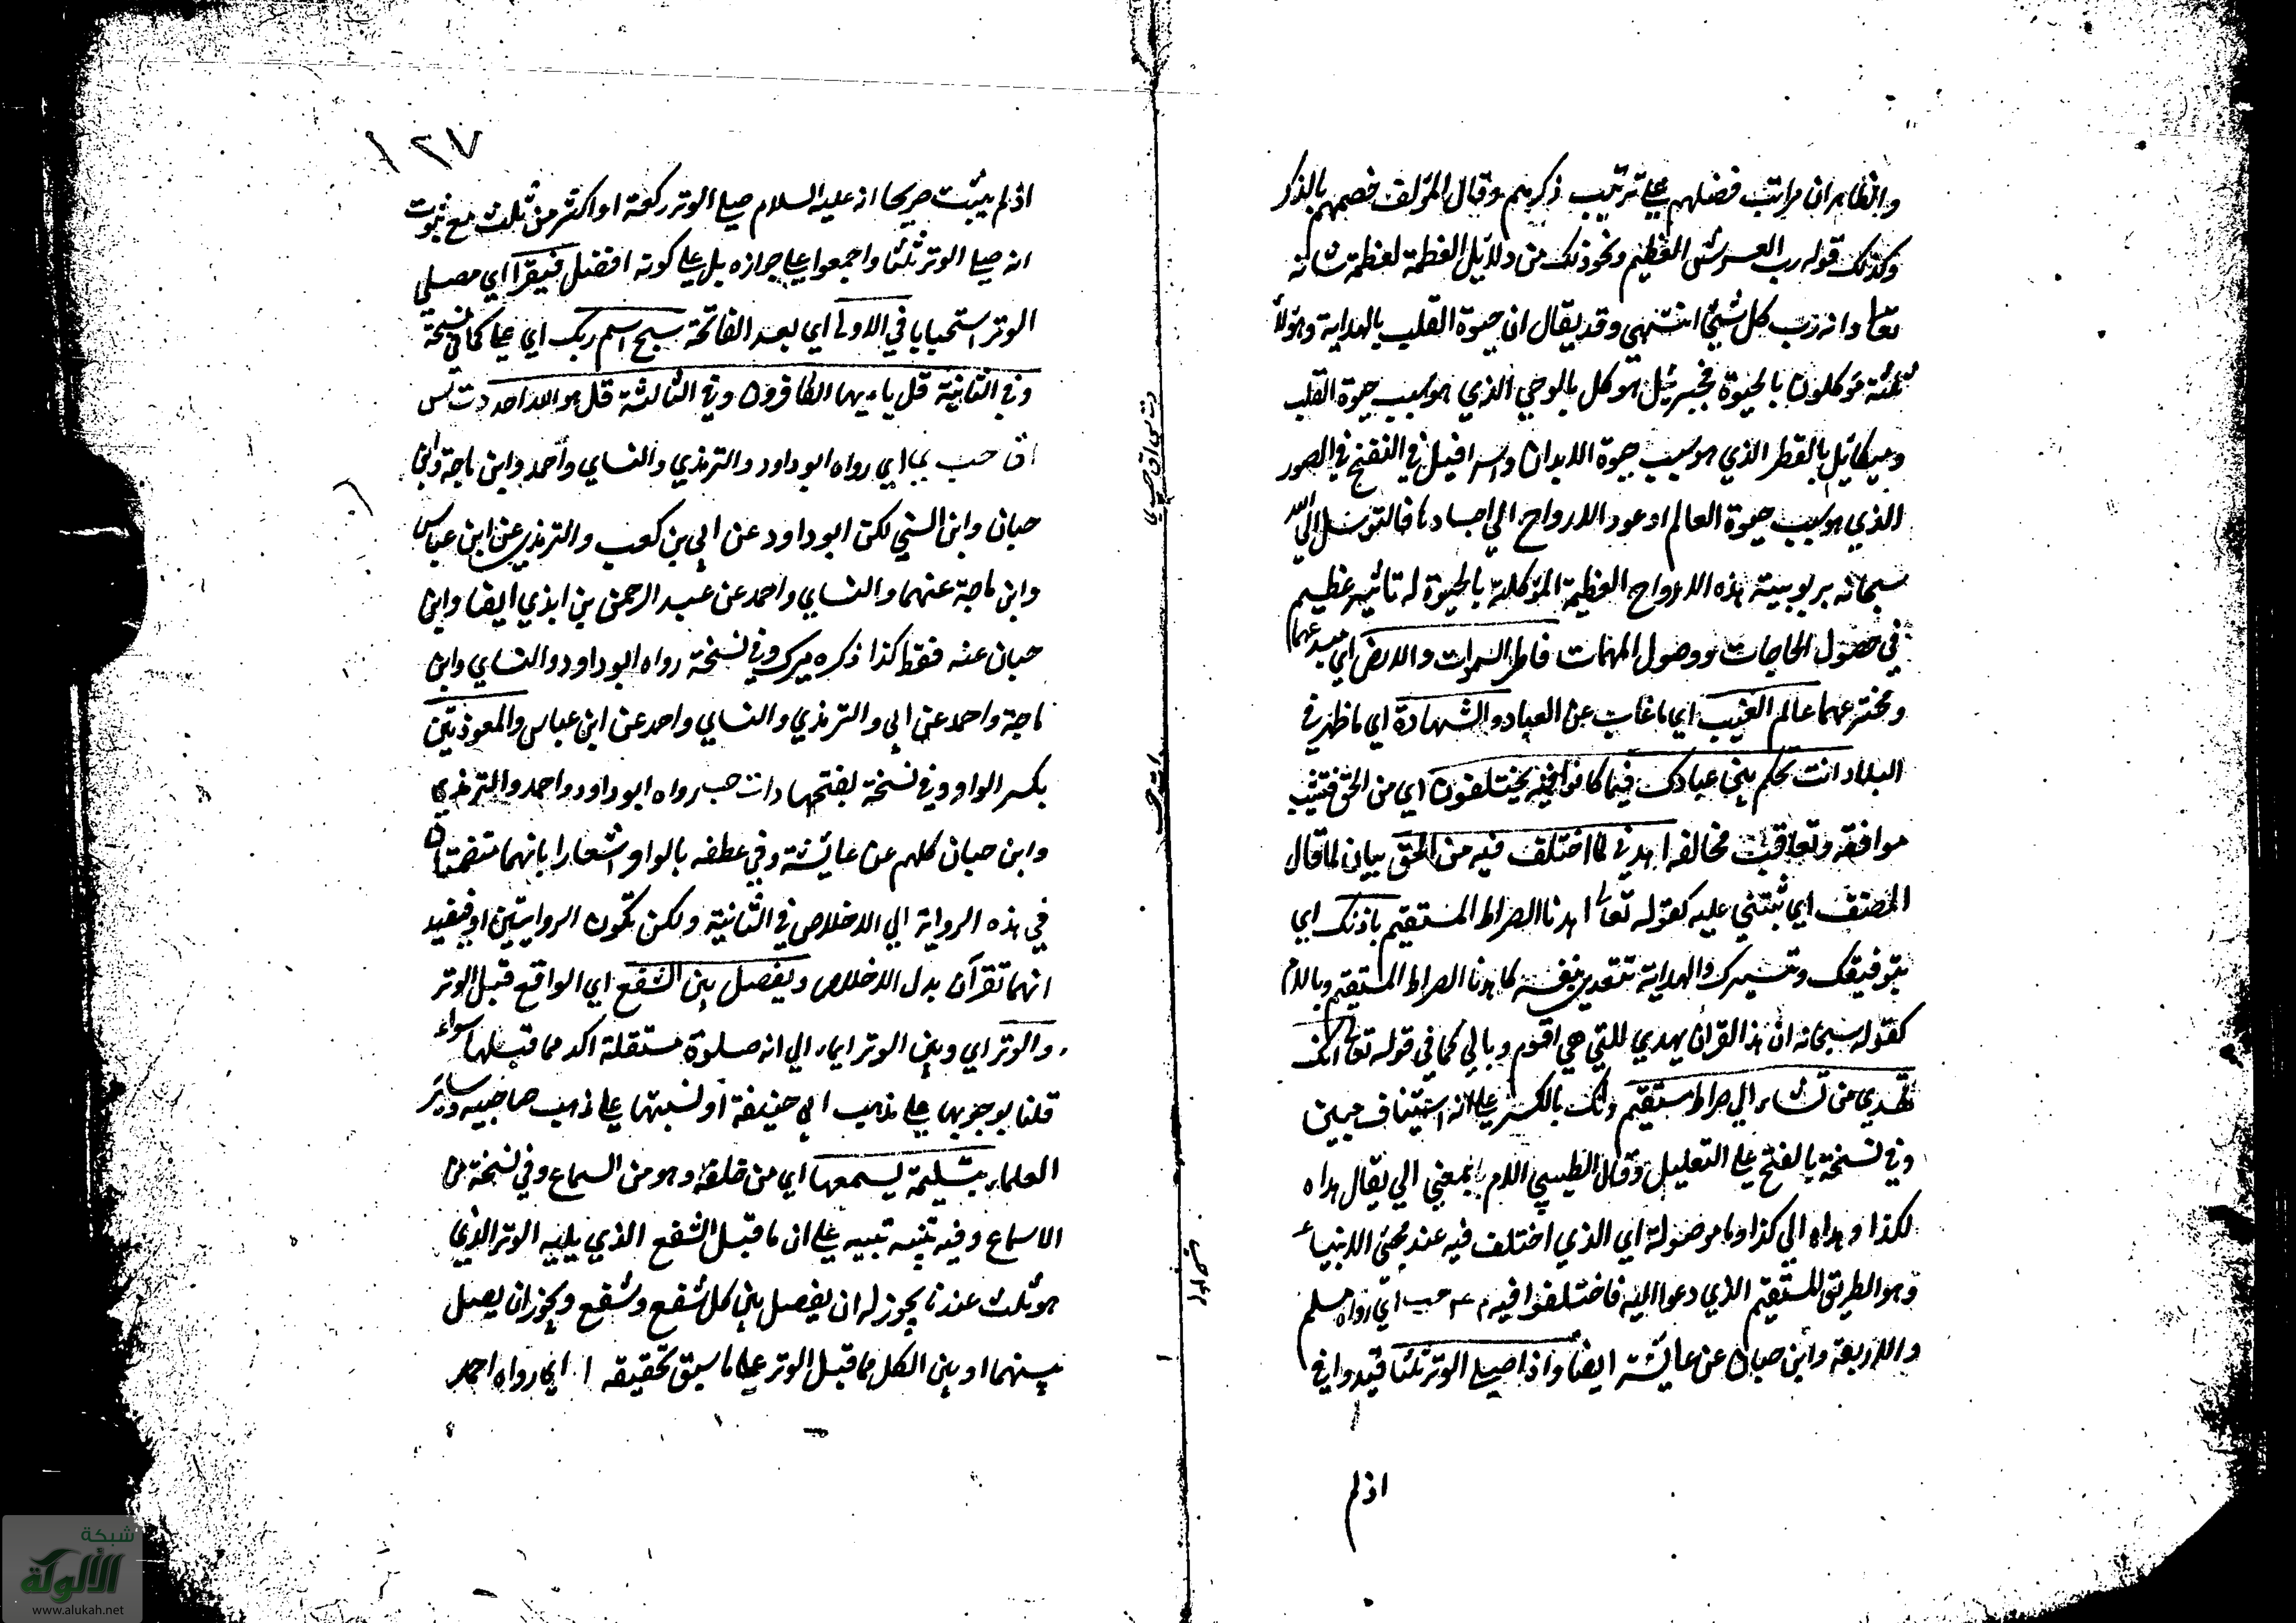 والظاهر ان مراتب فضلهم على ترتيب ذكرهم وقال المؤلف خصهم بالذكر
وكذلك قوله رب العرش العظيم ونحو ذلك من دلائل العظمة لعظمة شانه
تعا وانه رب كل شيئ انتهى وقد يقال ان حيوة القلب بالهداية وهؤلا
ثلثة موكلون بالحيوة فجبرئيل موكل بالوحي الذي هو سبب حيوة القلب
وميكائيل بالقطر الذي هو سبب حيوة الابدان واسرافيل في النفخ في الصور
الذي هو سبب حيوة العالم وعود الارواح الي اجسادها فالتوسل الي الله
سبحانه بربوبية هذه الارواح العظيمة الموكلة بالحيوة له تاثير عظيم
في حصول الحاجات ووصول المهمات فاطر السموات والارض اي مبدعهما
ومخترعهما عالم الغيب اي ما غاب عن العباد والشهادة اي ما ظهر في
البلاد انت تحكم بين عبادك فيما كانوا فيه يختلفون اي من الحق فتثيب
موافقه وتعاقب مخالفه اهدني لما اختلف فيه من الحق بيان لما قال
المصنف اي ثبتني عليه كقوله تعا اهدنا الصراط المستقيم باذنك اي
بتوفيقك وتيسيرك والهداية تتعدي بنفسه كاهدنا الصراط المستقيم وباللام
كقوله سبحانه ان هذا القران يهدي للتي هي اقوم وبالي كما في قوله تعا انك
تهدي من تشاء الي صراط مستقيم وانك بالكسر على انه استيناف مبين
وفي نسخة بالفتح على التعليل وقال الطيبي اللام بمعني الي يقال هداه
لكذا وهداه الي كذا وما موصولة اي الذي اختلف فيه عند مجئ الانبياء
وهو الطريق المستقيم الذي دعوا اليه فاختلفوا فيه م عه حب اي رواه مسلم
والاربعة وابن حبان عن عايشة ايضا واذا صلى الوتر ثلثا قيد واقعي
اذ لم
١٢٧
اذ لم يثبت صريحا انه عليه السلام صلى الوتر ركعة او اكثر من ثلث مع ثبوت
انه صلى الوتر ثلثا واجمعوا على جوازه بل على كونه افضل فيقرأ اي مصلي
الوتر استحبابا في الاولى اي بعد الفاتحة سبح اسم ربك اي على كما في نسخة
وفي الثانية قل ياءيها الكافرون وفي الثالثة قل هو الله احد د ت س
ا ق حب ي اي رواه ابو داود والترمذي والنساي وأحمد وابن ماجة وابن
حبان وابن السني لكن ابو داود عن ابي بن كعب والترمذي عن ابن عباس
وابن ماجة عنهما والنساي واحمد عن عبد الرحمن بن ابزي ايضا وابن
حبان عنه فقط كذا ذكره ميرك وفي نسخة رواه ابو داود والنساي وابن
ماجة واحمد عن ابي والترمذي والنساي واحمد عن ابن عباس والمعوذتين
بكسر الواو وفي نسخة بفتحها د ا ت حب رواه ابو داود واحمد والترمذي
وابن حبان كلهم عن عايشة وفي عطفه بالواو اشعارا بانهما منضمتان
في هذه الرواية الي الاخلاص في الثانية ولكن تكون الروايتين او فيفيد
انهما تقرآن بدل الاخلاص ويفصل بين الشفع اي الواقع قبل الوتر
والوتر اي وبين الوتر ايماء الي انه صلوة مستقلة اكد مما قبلها سواء
قلنا بوجوبها على مذهب ابي حنيفة او نسبتها على مذهب صاحبيه وسائر
العلماء بتسليمة يسمعها اي من خلفه وهو من السماع وفي نسخة من
الاسماع وفيه تنبيه على ان ما قبل الشفع الذي يليه الوتر الذي
هو ثلث عندنا يجوز له ان يفصل بين كل شفع وشفع ويجوز ان يصل
بينهما او بين الكل مما قبل الوتر على ما سبق تحقيقه ا اي رواه احمد
شبكة
الألوكة
www.alukah.net